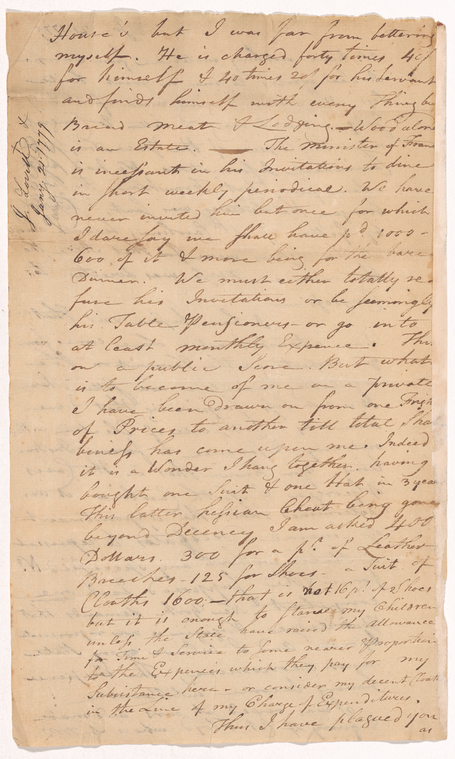 House's but I was far from bettering
myself. He is charged forty times 40/
for himself & 40 times 20/ for his servant
and finds himself with every thing be
Bread meat & Lodging. — Wood alone
is an Estate. — The Minister of France
is incessant in his Invitations to dine
in short weekly periodical. We have
never invited him but once for which
I dare say we shall have p'd 1000 -
600 of it & more being for the bare
Dinner. We must either totally re
fuse his Invitations or be seemingly
his Table Pensioners - or go into
at least monthly Expence. This
on a public Score. But what
is to become of me on a private
I have been drawn on from one
of Prices to another till total Sha
biness has come upon me. Indeed
it is a Wonder I hang together. having
bought one Suit & one Hat in 3 year
This latter hessian Cheat being gone
beyond Decency I am asked 400
Dollars. 300 for a p'r. of Leather
Breaches - 125 for Shoes. a Suit of
Cloaths 1600. — that is not 16 p'r. of Shoes
but it is enough to starve my Children
unless the State have raised the allowance
for Time & Service to some nearer Proportion
to the Expences which they pay for my
Subsistance here - or consider my decent
in the Line of my Charge of Expenditures.
Thus I have plagued you
as
J. Lovell
Jany. 1779